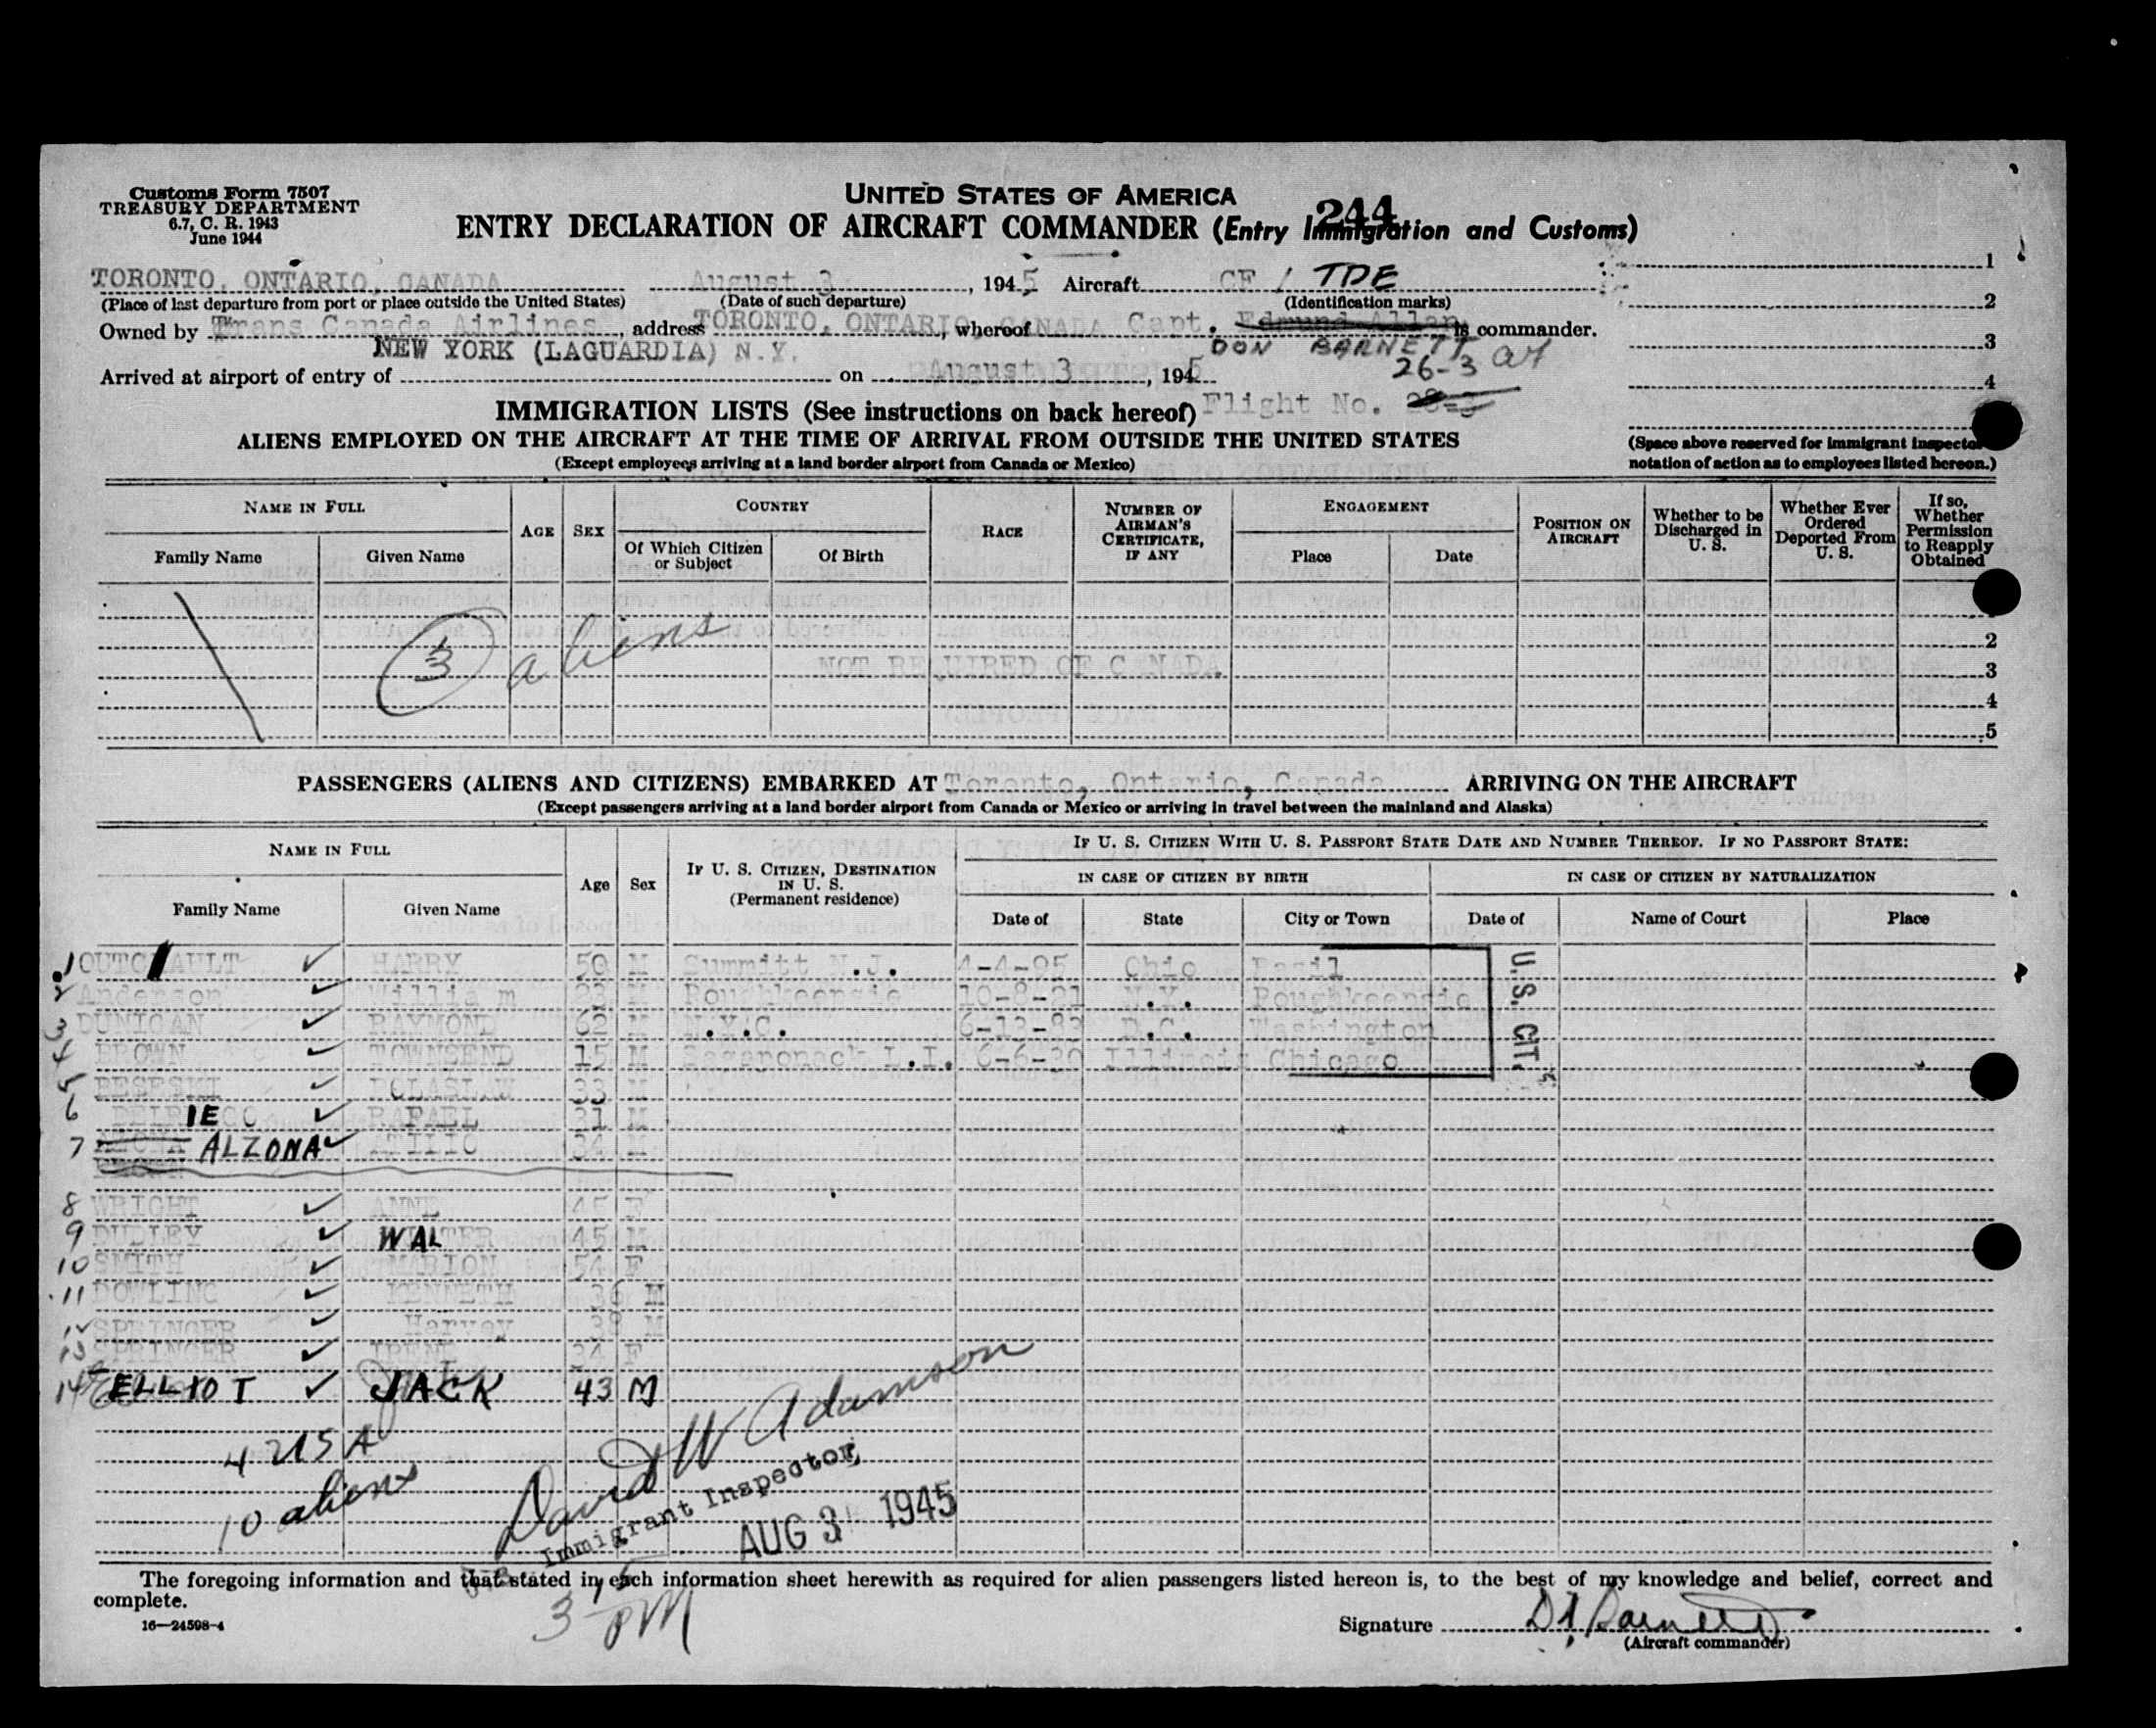 Customs Form 7507
TREASURY DEPARTMENT
6.7, C. R. 1943
June 1944
UNITED STATES OF AMERICA
244
ENTRY DECLARATION OF AIRCRAFT COMMANDER (Entry Immigration and Customs)
TORONTO, ONTARIO, CANADA August 3, 1945 Aircraft CF / TDE
(Place of last departure from port or place outside the United States) (Date of such departure) (Identification marks)
Owned by Trans Canada Airlines, address TORONTO, ONTARIO, CANADA, whereof Capt. Edmund Allan is commander.
DON BARNETT
NEW YORK (LAGUARDIA) N.Y.
Arrived at airport of entry of on August 3, 1945
26-3
IMMIGRATION LISTS (See instructions on back hereof) Flight No. 28-3
ALIENS EMPLOYED ON THE AIRCRAFT AT THE TIME OF ARRIVAL FROM OUTSIDE THE UNITED STATES
(Except employees arriving at a land border airport from Canada or Mexico)
1
2
3
4
(Space above reserved for immigrant inspector
notation of action as to employees listed hereon.)
NAME IN FULL
Family Name Given Name
AGE SEX
COUNTRY
Of Which Citizen or Subject Of Birth
RACE
NUMBER OF AIRMAN'S CERTIFICATE, IF ANY
ENGAGEMENT
Place Date
POSITION ON AIRCRAFT
Whether to be Discharged in U. S.
Whether Ever Ordered Deported From U. S.
If so, Whether Permission to Reapply Obtained
3 aliens
NOT REQUIRED OF CANADA
2
3
4
5
PASSENGERS (ALIENS AND CITIZENS) EMBARKED AT Toronto, Ontario, Canada ARRIVING ON THE AIRCRAFT
(Except passengers arriving at a land border airport from Canada or Mexico or arriving in travel between the mainland and Alaska)
NAME IN FULL
Family Name Given Name
Age Sex
IF U. S. CITIZEN, DESTINATION IN U. S.
(Permanent residence)
IF U. S. CITIZEN WITH U. S. PASSPORT STATE DATE AND NUMBER THEREOF. IF NO PASSPORT STATE:
IN CASE OF CITIZEN BY BIRTH IN CASE OF CITIZEN BY NATURALIZATION
Date of State City or Town Date of Name of Court Place
1 OUTCAULT ✓ HARRY 50 M Summitt N.J. 4-4-95 Ohio Basil
2 Anderson ✓ William M Poughkeepsie 10-8-21 N.Y. Poughkeepsie
3 DUNIGAN ✓ RAYMOND 62 M N.Y.C. 6-13-83 D.C. Washington
4 BROWN ✓ TOWNSEND 15 M Sagaponack L.I. 6-6-30 Illinois Chicago
U.S. CIT.
5 ✓ 33 M
6 ✓ RAFAEL 31 M
7 ALZONA ✓ ATILIO 34 M
8 WRIGHT ✓ ANNE 45 F
9 DUDLEY ✓ WALTER 45 M
10 SMITH ✓ MARION 54 F
11 DOWLING ✓ KENNETH 36 M
12 SPRINGER ✓ Harvey 38 M
13 SPRINGER ✓ IRENE 34 F
14 ELLIOT ✓ JACK 43 M
4 USA
10 aliens
David W Adamson
Immigrant Inspector
AUG 3 1945
The foregoing information and that stated in each information sheet herewith as required for alien passengers listed hereon is, to the best of my knowledge and belief, correct and
complete.
16—24598-4
3 PM
Signature D Barnett
(Aircraft commander)